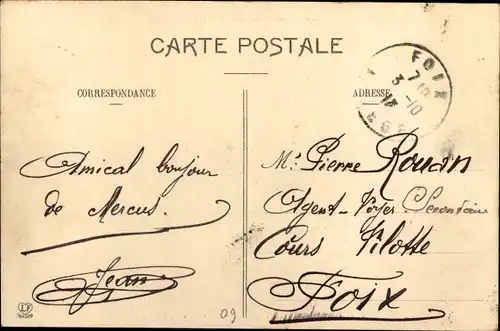 CARTE POSTALE
CORRESPONDANCE
ADRESSE
FOIX
7 15
3 -10
13
Amical bonjour
de Mercus.
Jean
Mr. Pierre Rouan
Agent-Voyer Secondaire
Cours Pilotte
Foix
09
LF